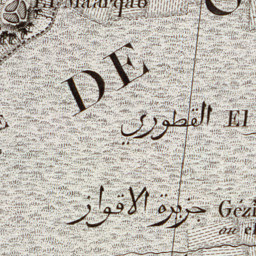 El Maarqab
DE
القطوري El
جزيرة الاقواز Gézi
ou el